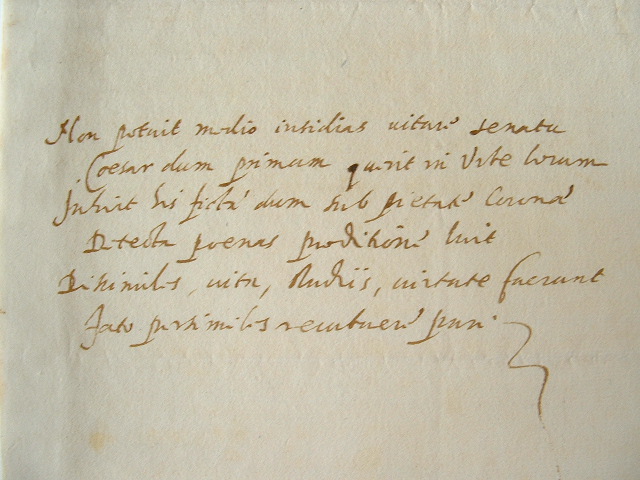 Non potuit medio insidias uitare senatu
Coesar dum primum querit in Vrbe locum
ficta dum sub pietate Corona
Detecta poenas proditione luit
Dissimiles, uita, studiis, uirtute fuerunt
fato persimiles recubuere pari